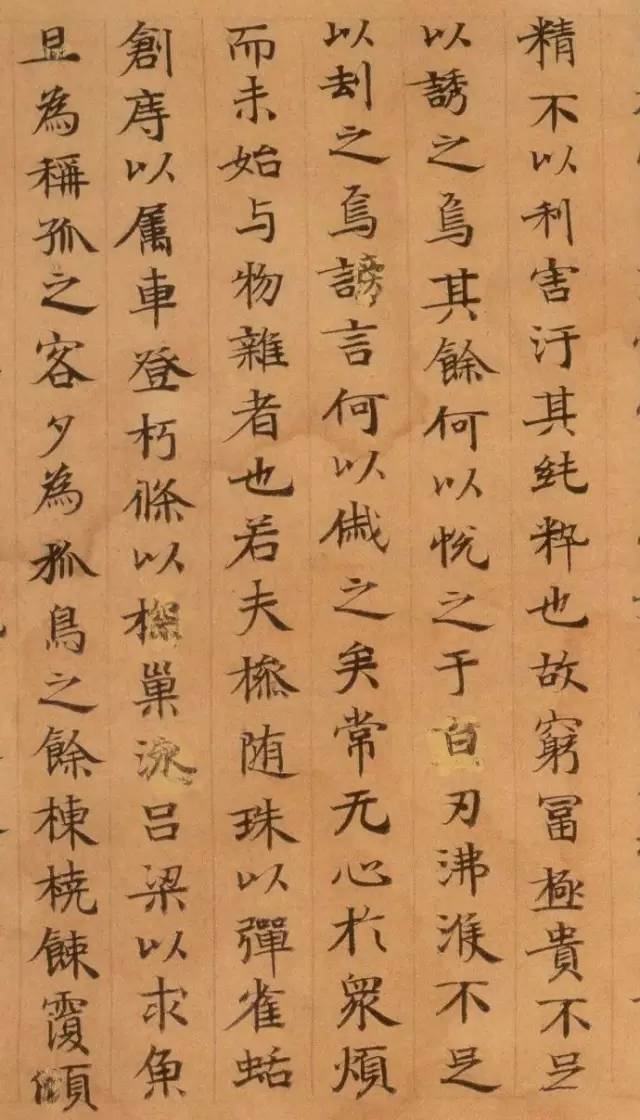 精不以利害汙其純粹也故窮冨極貴不足
以誘之焉其餘何以悅之乎白刃沸濩不足
以刦之焉謗言何以慼之矣常无心於衆煩
而未始与物雜者也若夫操随珠以彈雀蛞
創痔以属車登朽條以探巢泳吕梁以求魚
旦為稱孤之客夕為孤鳥之餘棟橈餗覆傾